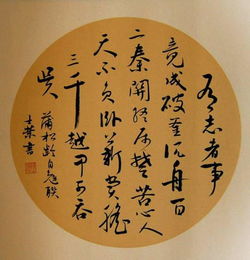 有志者事
竟成破釜沉舟百
二秦關终屬楚苦心人
天不負卧薪嘗膽
三千越甲可吞
吴
蒲松齡自勉联
書